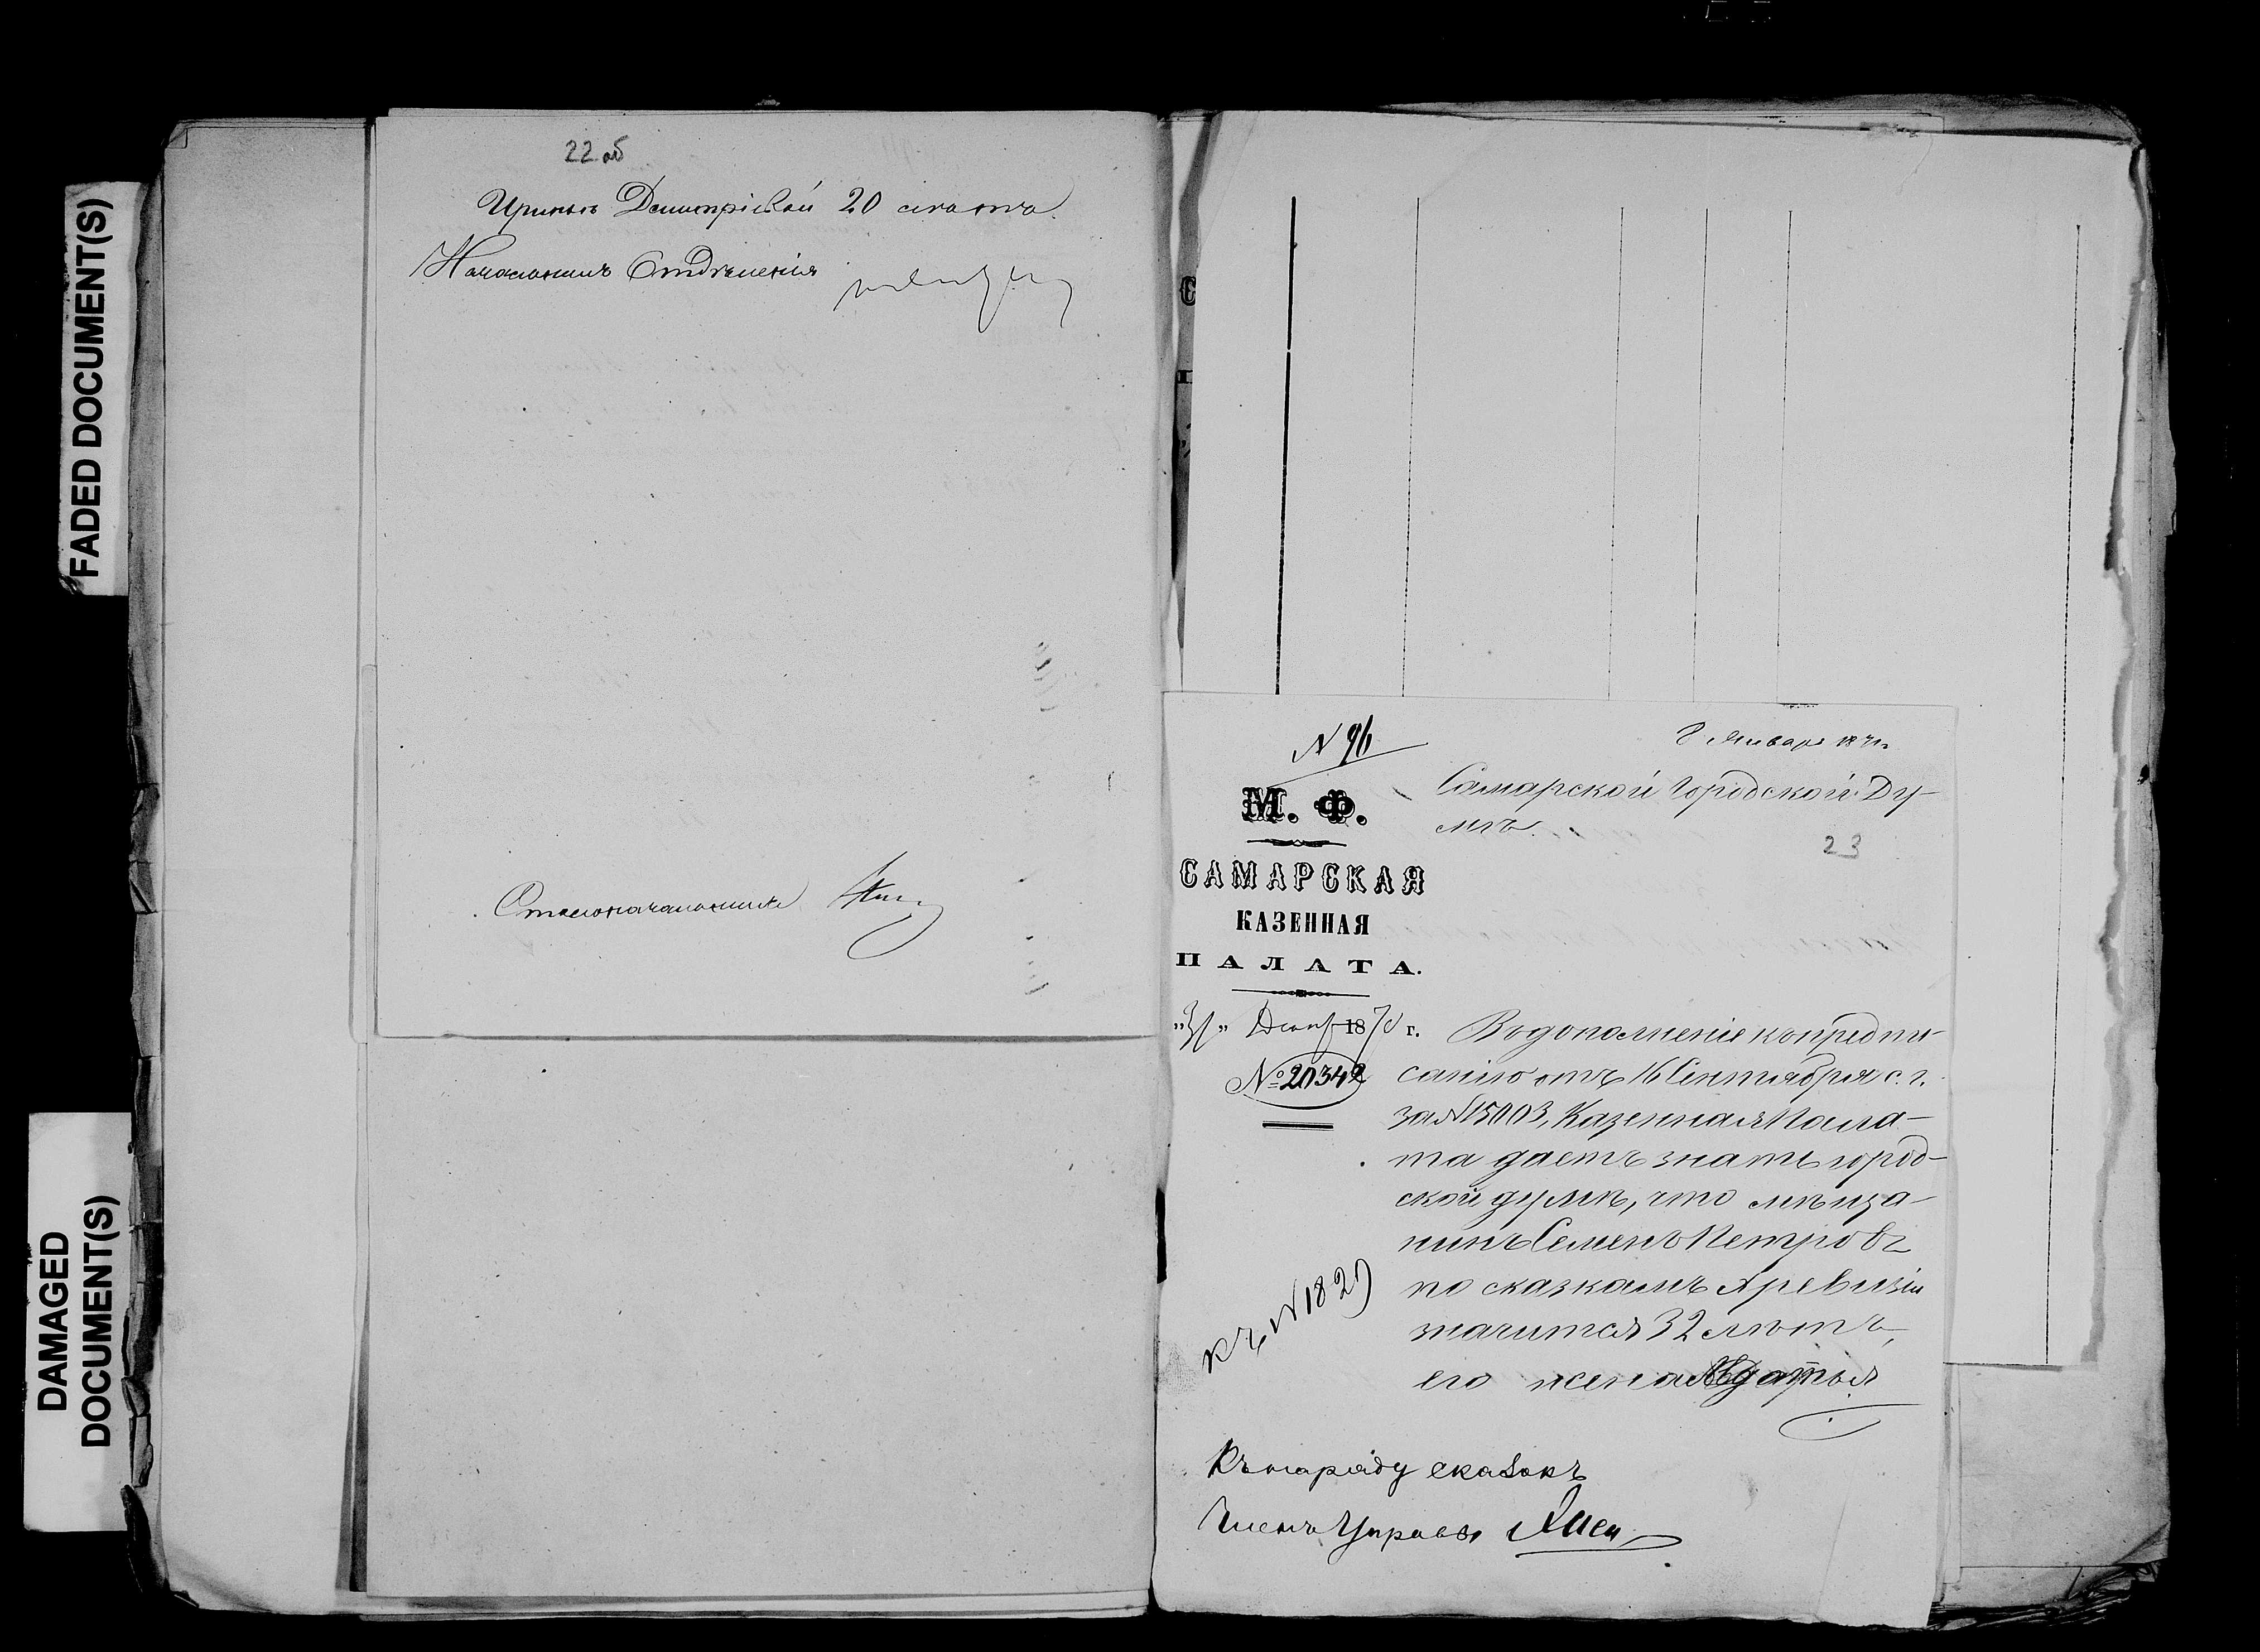 FADED DOCUMENT(S)
DAMAGED
DOCUMENT(S)
22 об
Иринѣ Дмитріевой 20 лѣтъ.
Начальникъ Отдѣленія
Столоначальникъ
N 96
8 Января 1871 г.
М. Ф.
САМАРСКАЯ
КАЗЕННАЯ
ПАЛАТА.
„31" Декаб 1870 г.
№ 20342
Самарской Городской Ду-
мѣ.
23
Въ дополненіе къ предпи-
санію отъ 16 Сентября с. г.
за N 15003, Казенная Пала-
та даетъ знать город-
ской думѣ, что мѣща-
нинъ Семенъ Петровъ
по сказкамъ X ревизіи
значится 32 лѣтъ,
его жена
къ N 1829
Къ наряду сказокъ
Членъ Управы